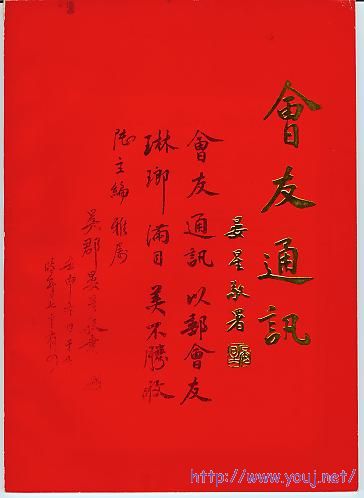 會友通訊
晏星敬署
會友通訊以郵會友
琳瑯滿目美不勝收
陸主編雅屬
吳郡晏星
http://www.youj.net/